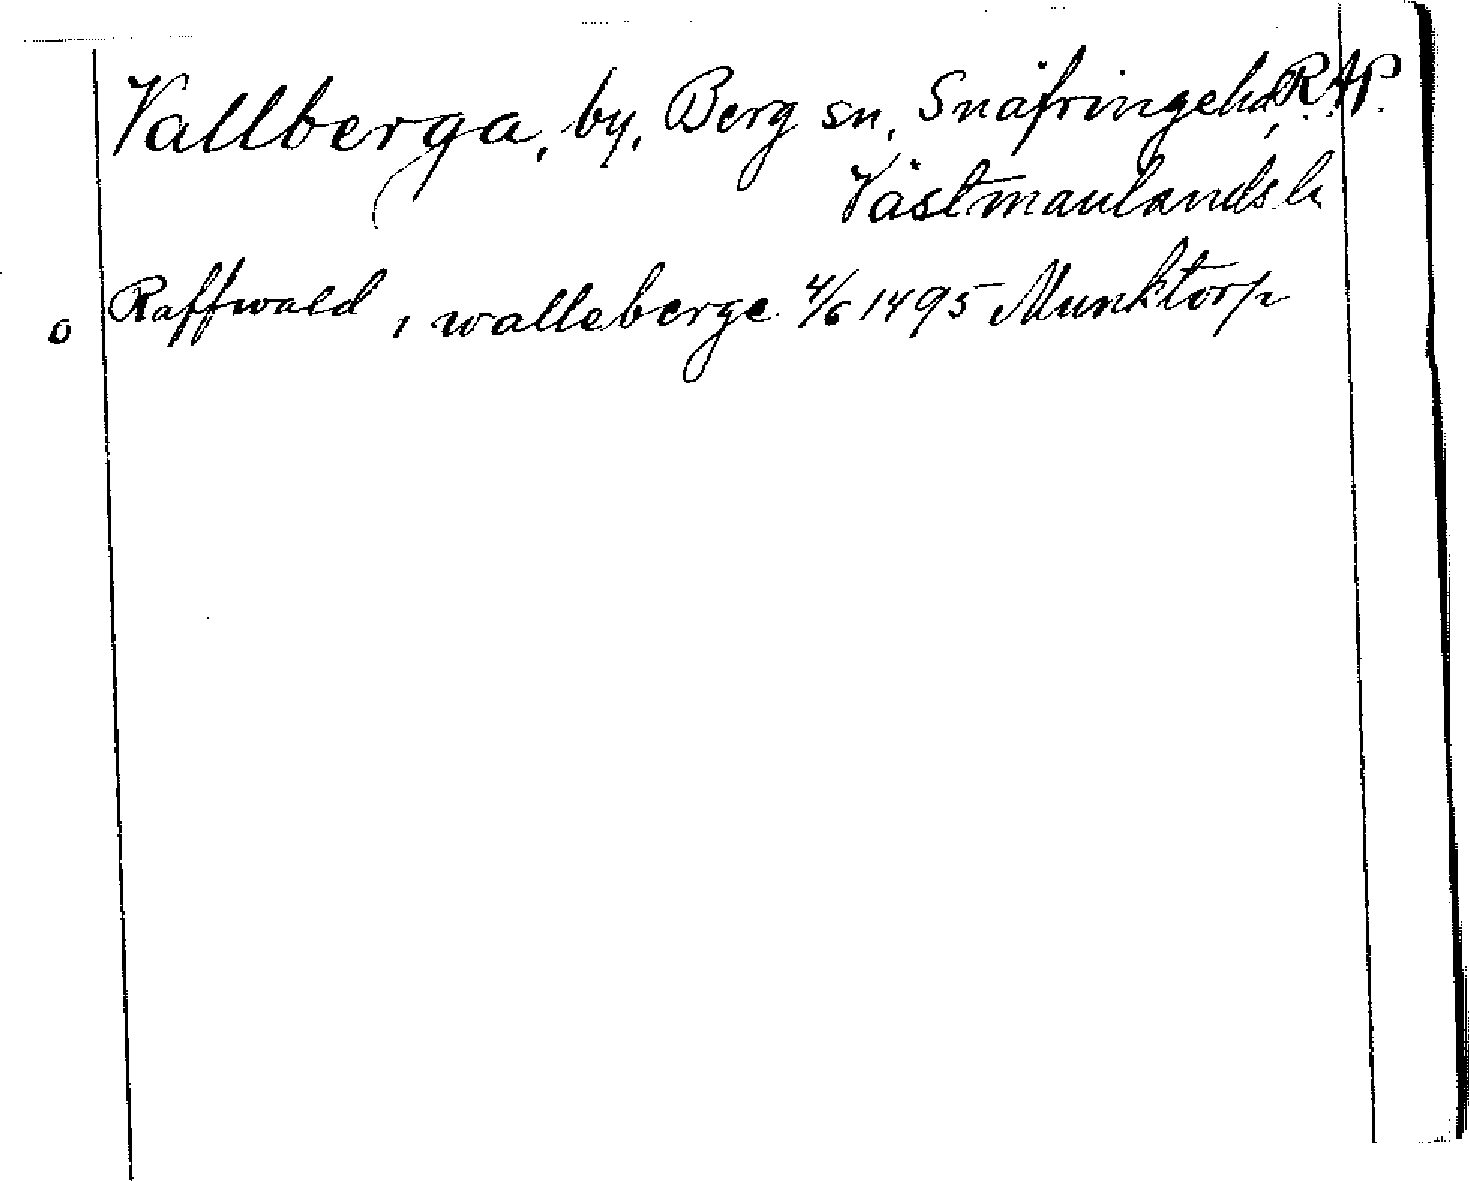 Vallberga, by, Berg sn, Snäfringe hd, R.A.P.
Västmanlands l.
o Raffwald i walleberge 4/6 1495 Munktorp